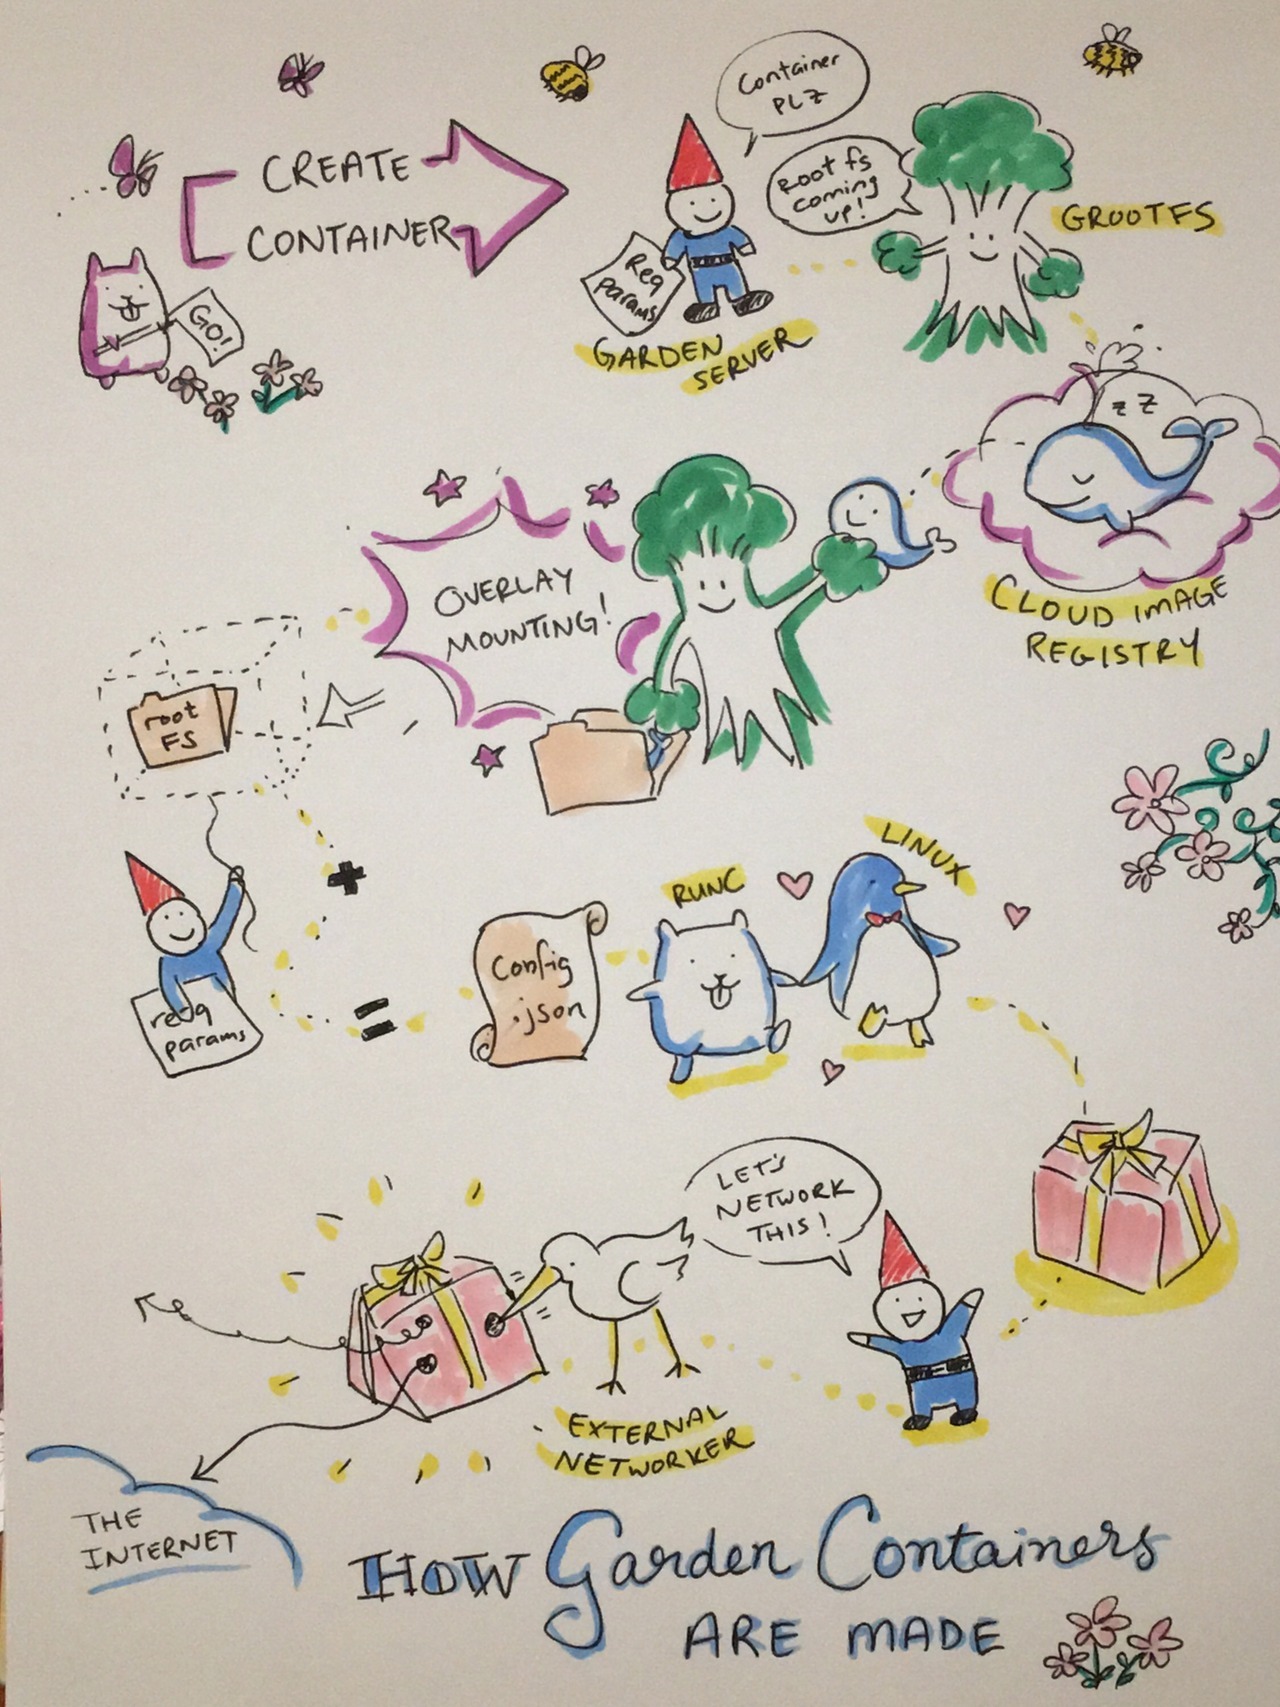 CREATE
CONTAINER
GO!
Container
PLZ
Root fs
coming
up!
GROOTFS
Req
params
GARDEN
SERVER
zz
CLOUD IMAGE
REGISTRY
OVERLAY
MOUNTING!
root
FS
+
req
params
=
Config
.json
RUNC
LINUX
LET'S
NETWORK
THIS!
EXTERNAL
NETWORKER
THE
INTERNET
HOW Garden Containers
ARE MADE